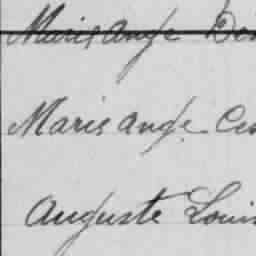 Marie Ange
Marie Ange
Auguste Louis